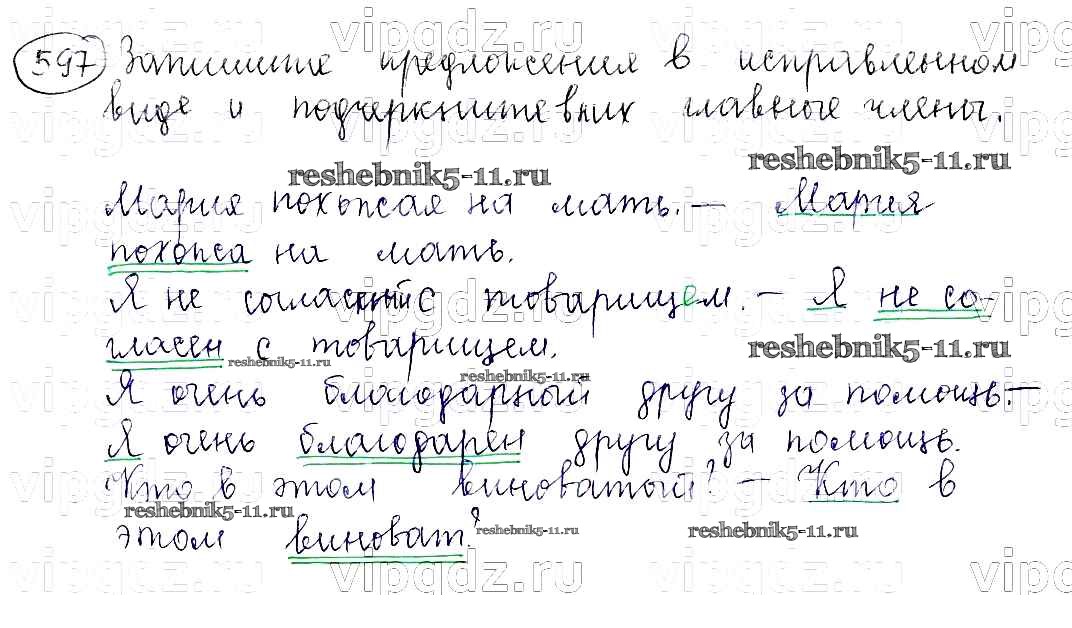 597 Запишите предложения в исправленном
виде и подчеркните в них главные члены.
reshebnik5-11.ru reshebnik5-11.ru
Мария похожая на мать. – Мария
похожа на мать.
Я не согласный с товарищем. – Я не со-
гласен с товарищем.
reshebnik5-11.ru reshebnik5-11.ru reshebnik5-11.ru
Я очень благодарный другу за помощь. –
Я очень благодарен другу за помощь.
Кто в этом виноватый? – Кто в
reshebnik5-11.ru reshebnik5-11.ru reshebnik5-11.ru
этом виноват?
vipgdz.ru